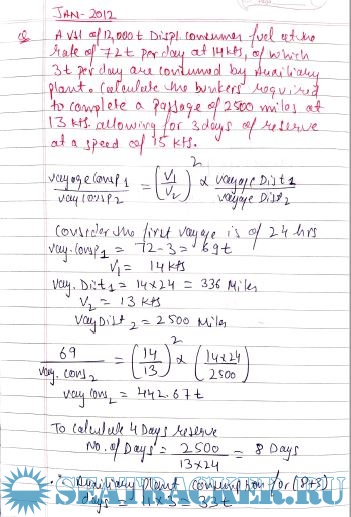 JAN-2012
Q A Vsl of 12,000t Displ consumes fuel at the
rate of 72t per day at 14kts, of which
3t per day are consumed by Auxiliary
plant. Calculate the bunkers required
to complete a passage of 2500 miles at
13 kts. allowing for 3 days of reserve
at a speed of 15 kts.
voyage Consp 1 / voy consp 2 = (V1/V2)² x voyage Dist 1 / voyage Dist 2
Consider the first voyage is of 24 hrs
voy. consp 1 = 72-3 = 69t
V1 = 14 kts
voy. Dist 1 = 14x24 = 336 Miles
V2 = 13 kts
voy Dist 2 = 2500 Miles
69 / voy. cons 2 = (14/13)² x (14x24/2500)
voy cons 2 = 442.67t
To calculate 4 Days reserve
No. of Days = 2500 / 13x24 = 8 Days
∴ Auxiliary Plant consumption for (8+3)
days = 11x3 = 33t
SEATRACKER.RU